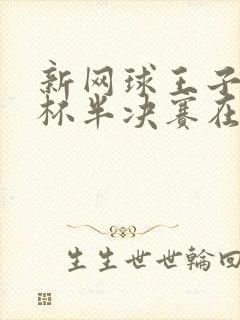 新网球王子
杯半决赛在
生生世世輪回